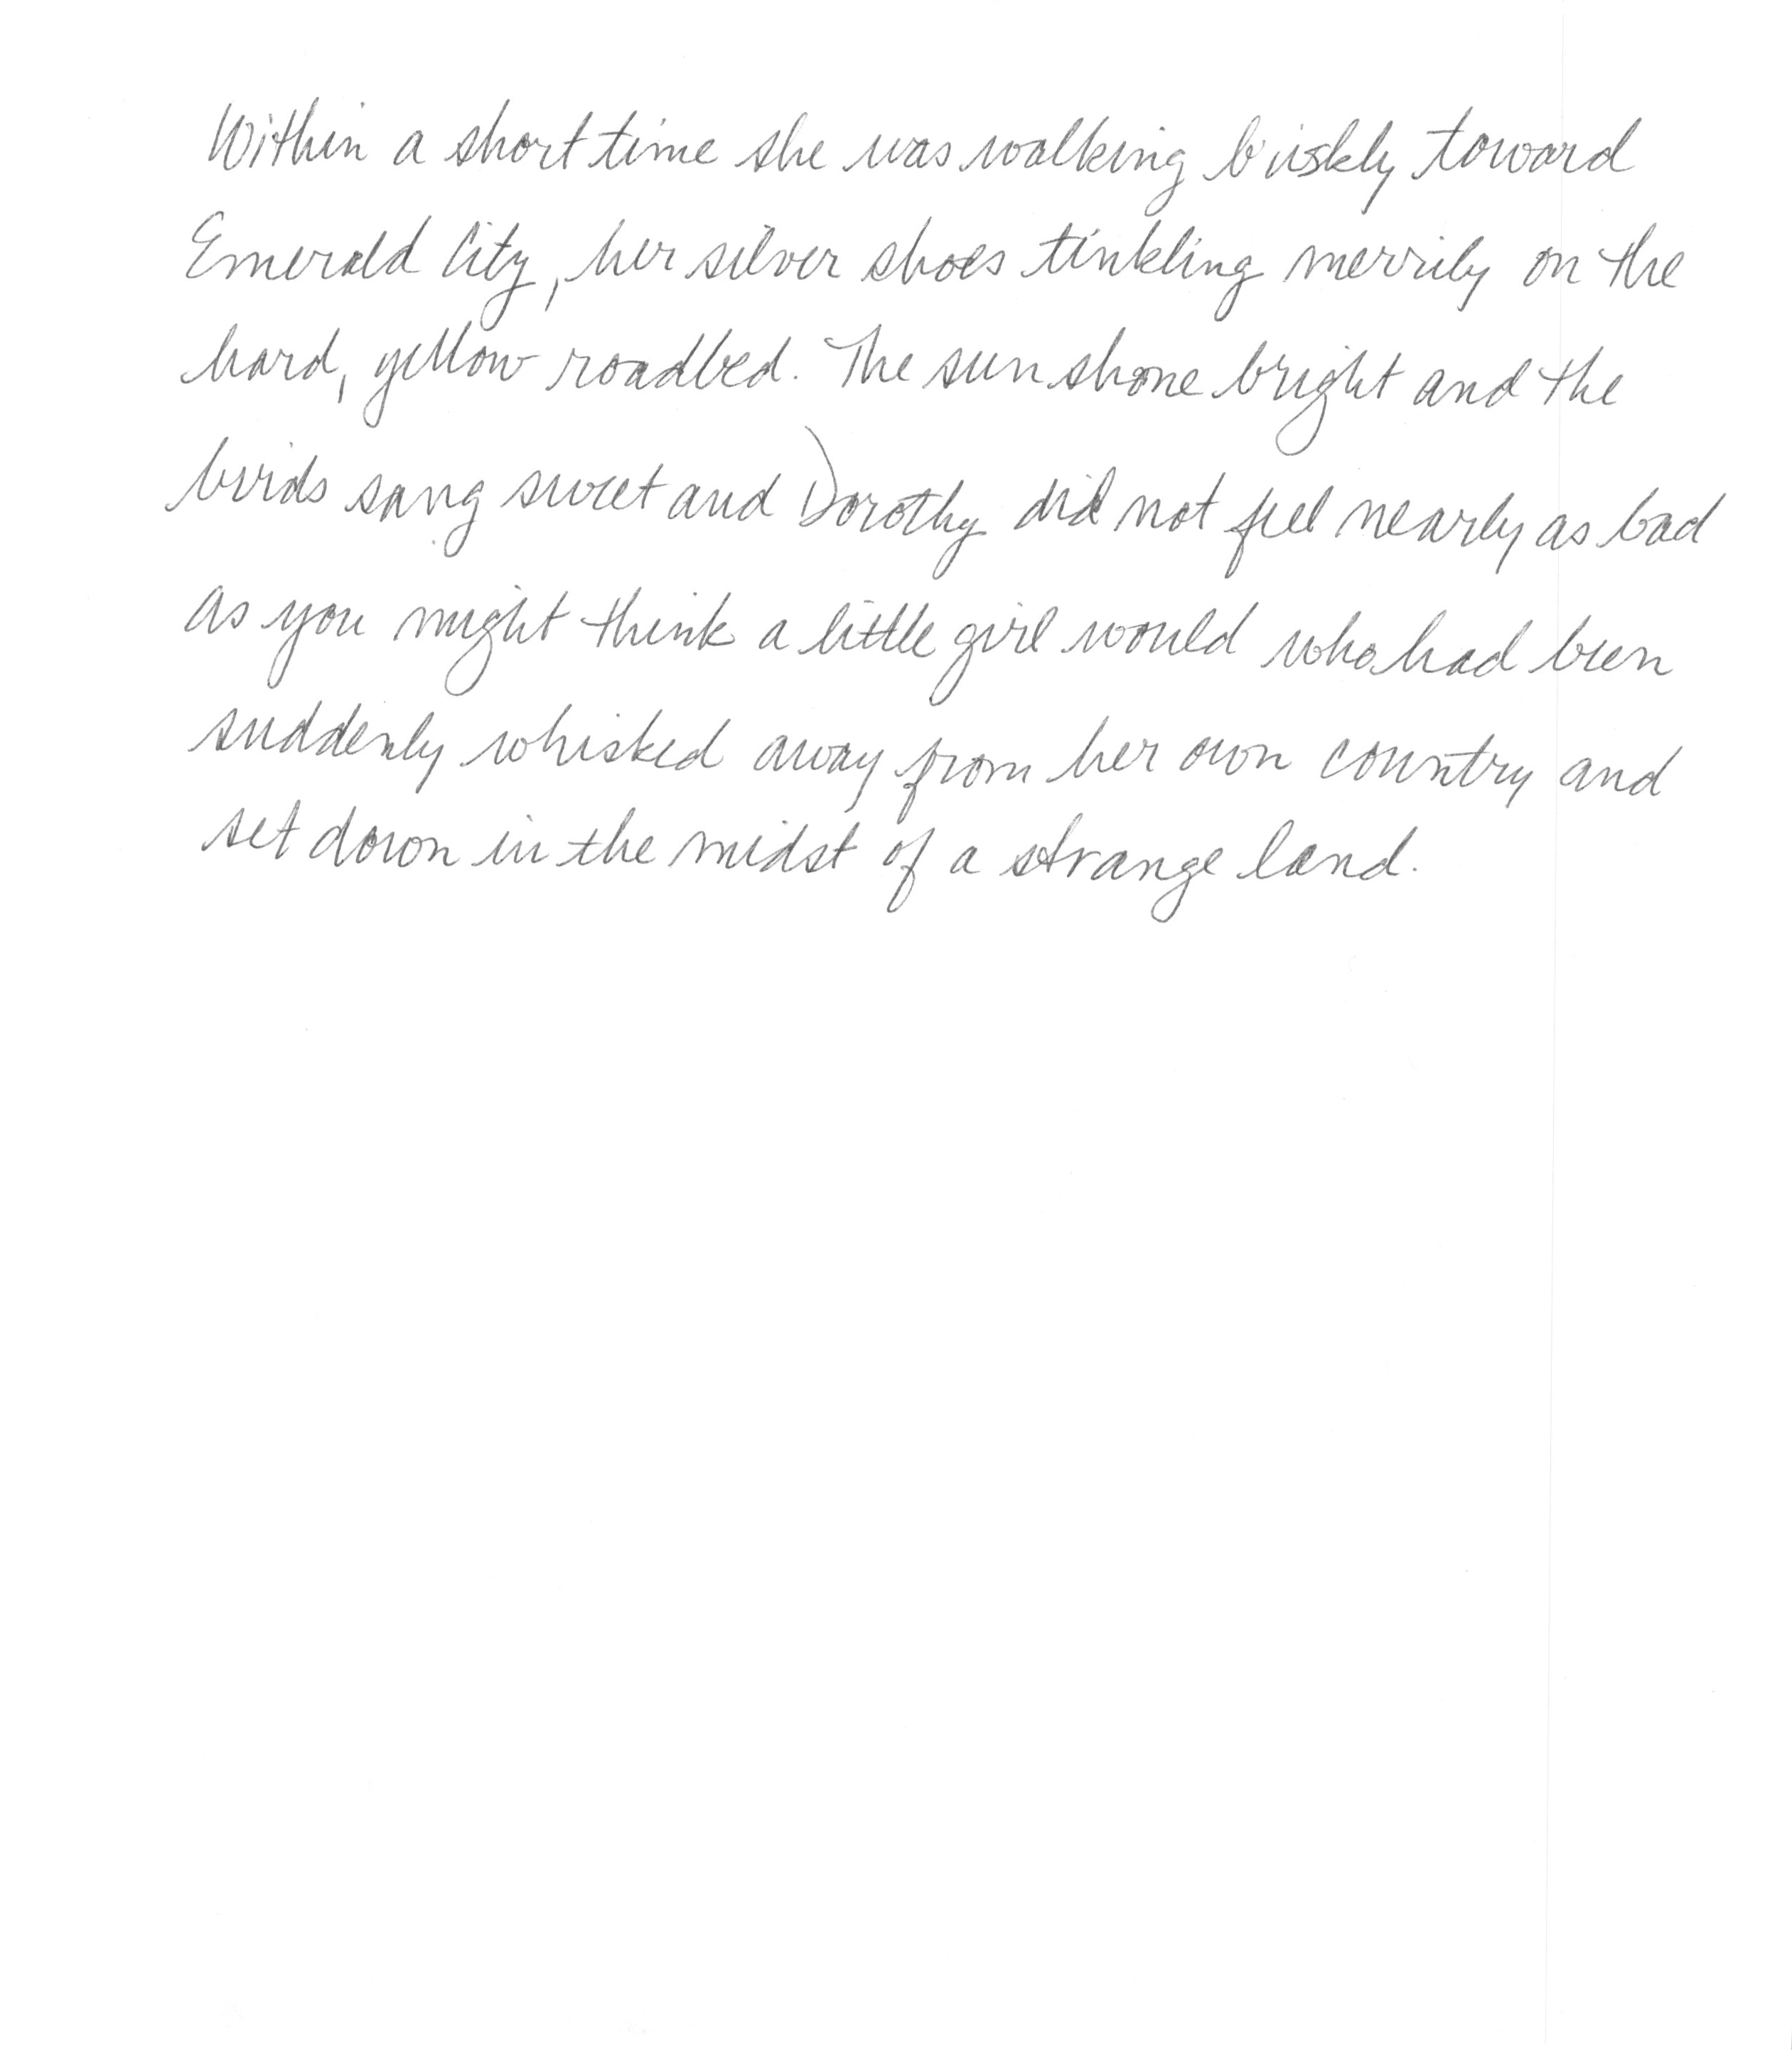 Within a short time she was walking briskly toward
Emerald City, her silver shoes tinkling merrily on the
hard, yellow roadbed. The sun shone bright and the
birds sang sweet and Dorothy did not feel nearly as bad
as you might think a little girl would who had been
suddenly whisked away from her own country and
set down in the midst of a strange land.